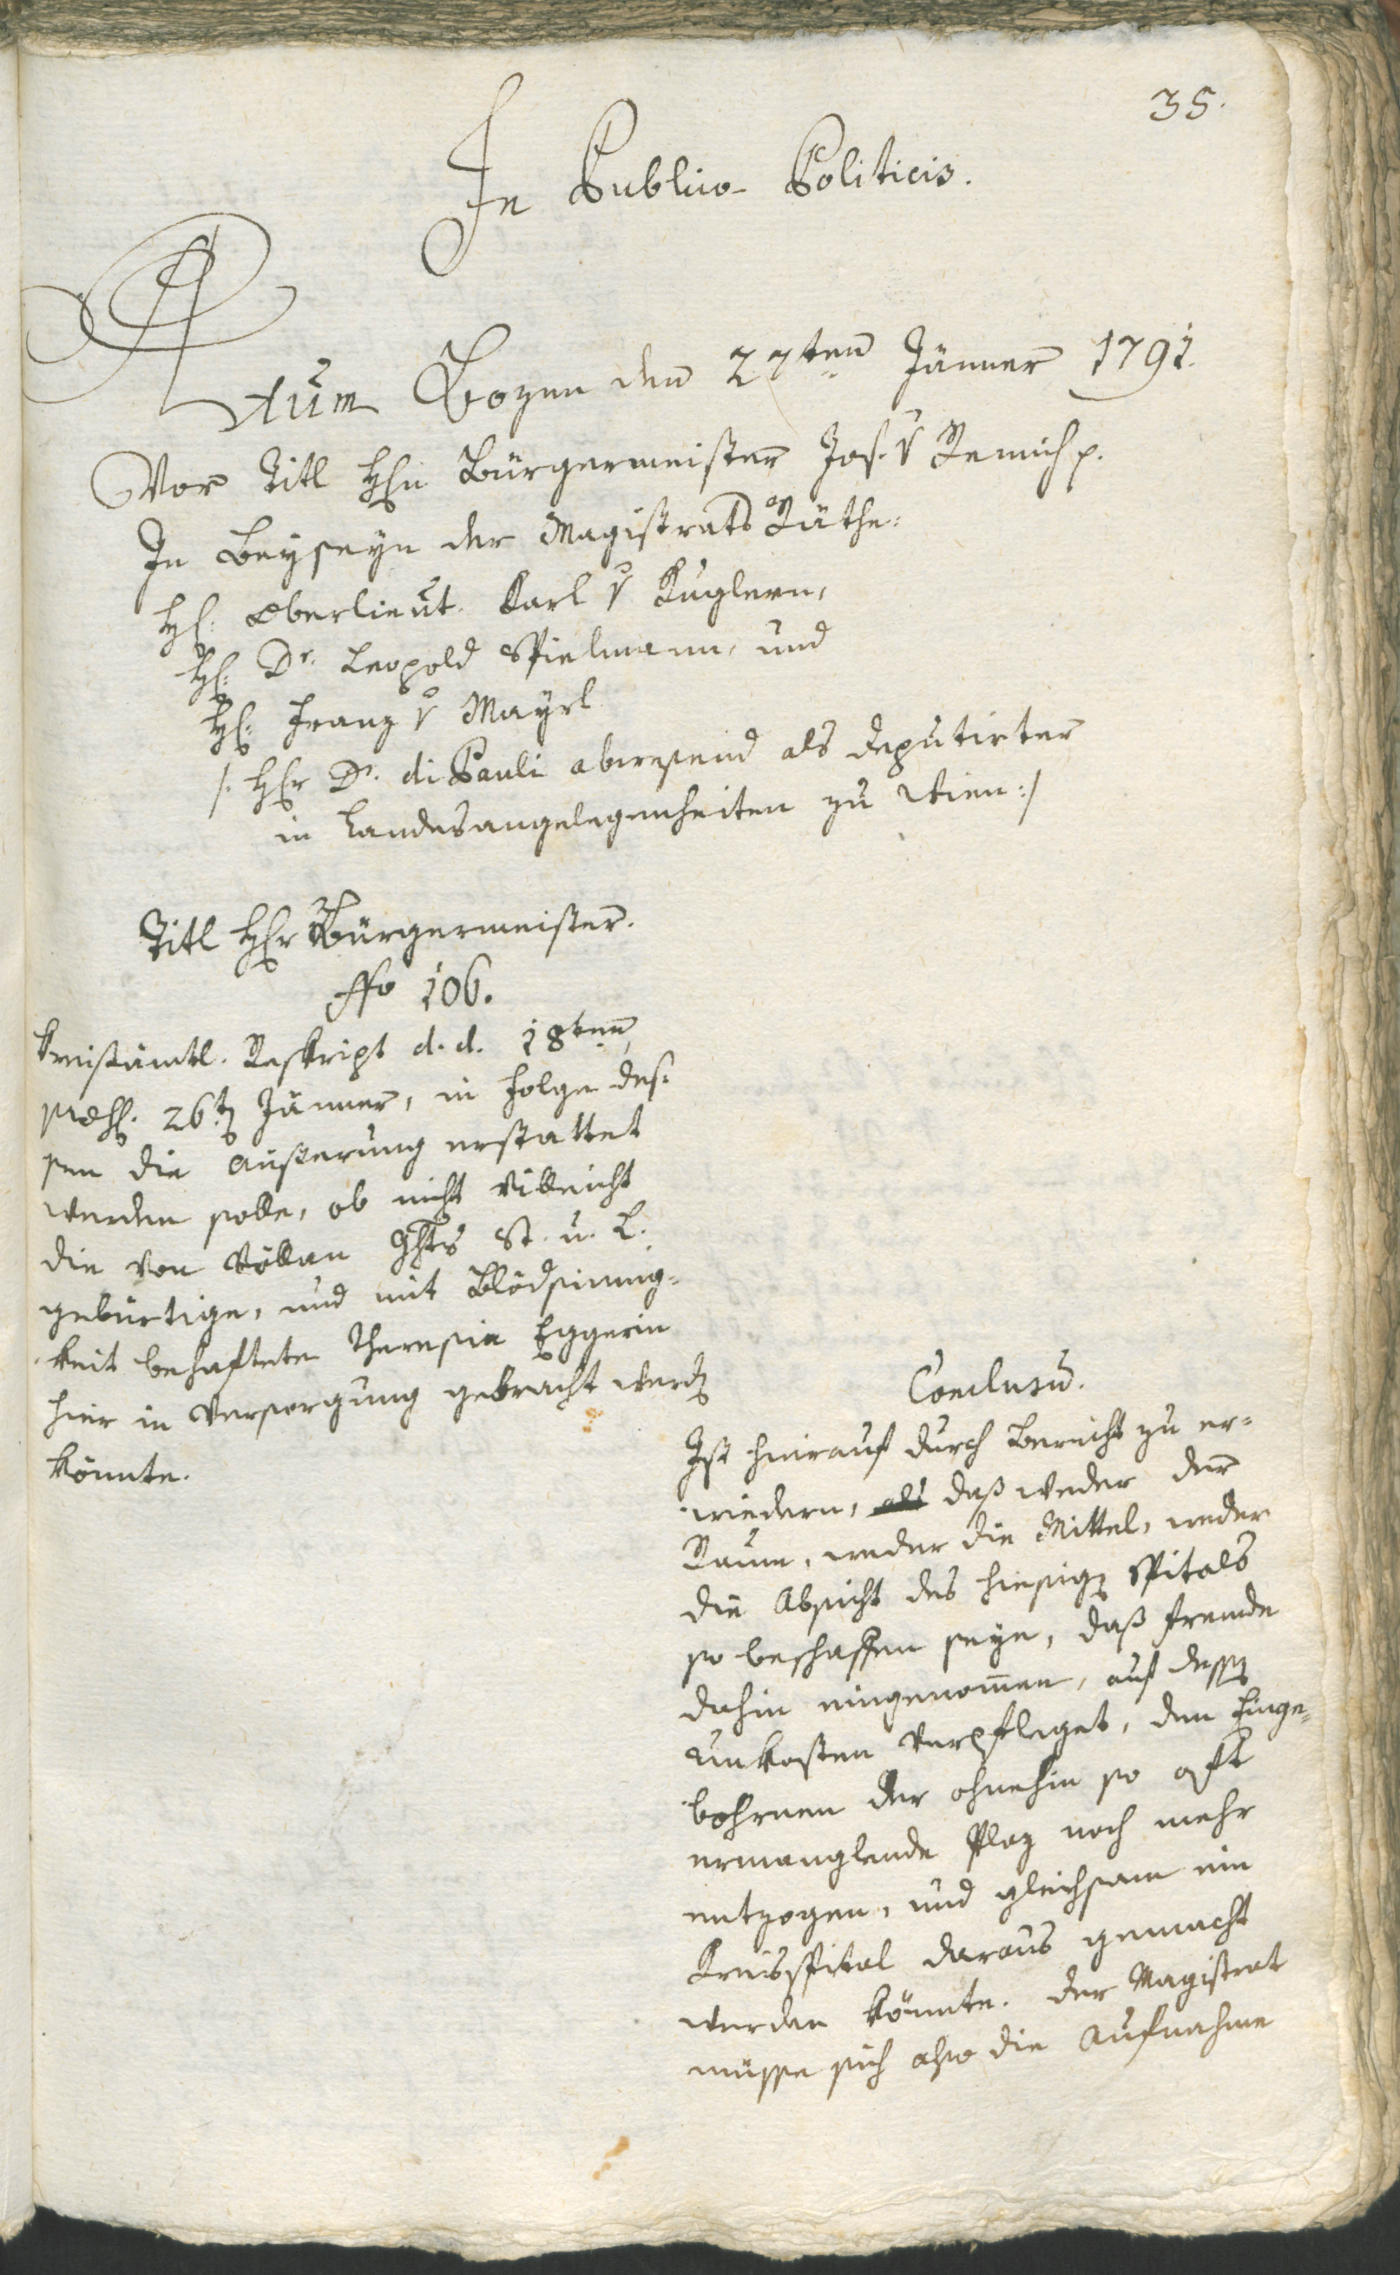 35.
In Publico-Politicis.
Actum Bozen den 27ten Jänner 1791.
Vor Titl Hhn Bürgermeister Jos. v Remich p.
In Beyseyn der Magistrats Räthe:
Hh: Oberlieut. Karl v Kuglern,
Hh: Dr. Leopold Spielmann, und
Hh: Franz v Mayrl
/: Hhr Dr. di Pauli abwesend als Deputirter
in Landesangelegenheiten zu Wien :/
Titl Hhr Bürgermeister.
No 106.
Kreisämtl. Reskript d. d. 18ten,
26t Jänner, in Folge des-
sen die Äusserung erstattet
werden solle, ob nicht Villeicht
die von Völlan Ghts St. u. L.
gebürtige, und mit Blödsinnig-
keit behaftete Theresia Eggerin
hier in Versorgung gebracht werd
könnte.
Conclusu.
Ist hierauf durch Bericht zu er-
wiedern, als daß weder der
Raum, weder die Mittel, weder
die Absicht des hiesig Spitals
so beschaffen seye, daß Fremde
dahin eingenomen, auf dess
Unkosten verpfleget, den Einge-
bohrnen der ohnehin so oft
ermanglende Plaz noch mehr
entzogen, und gleichsam ein
Kreisspital daraus gemacht
werden könnte. Der Magistrat
müsse sich also die Aufnahme